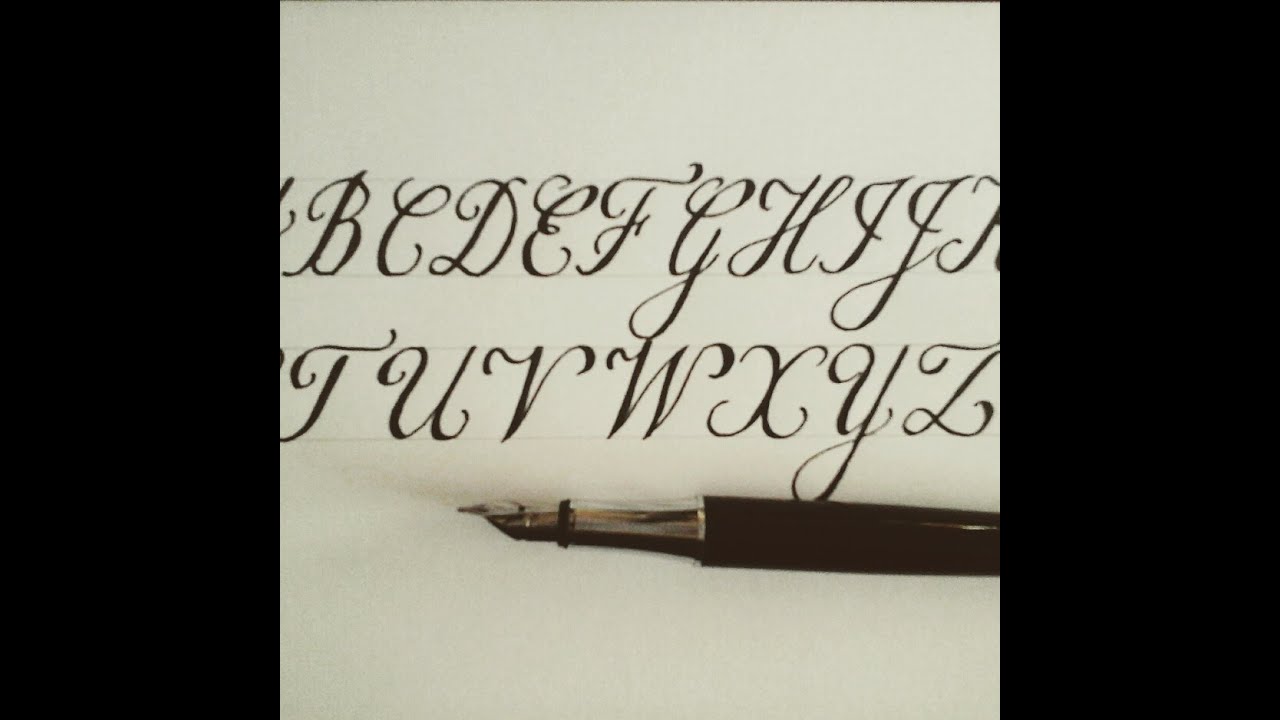 A B C D E F G H I J K
T U V W X Y Z